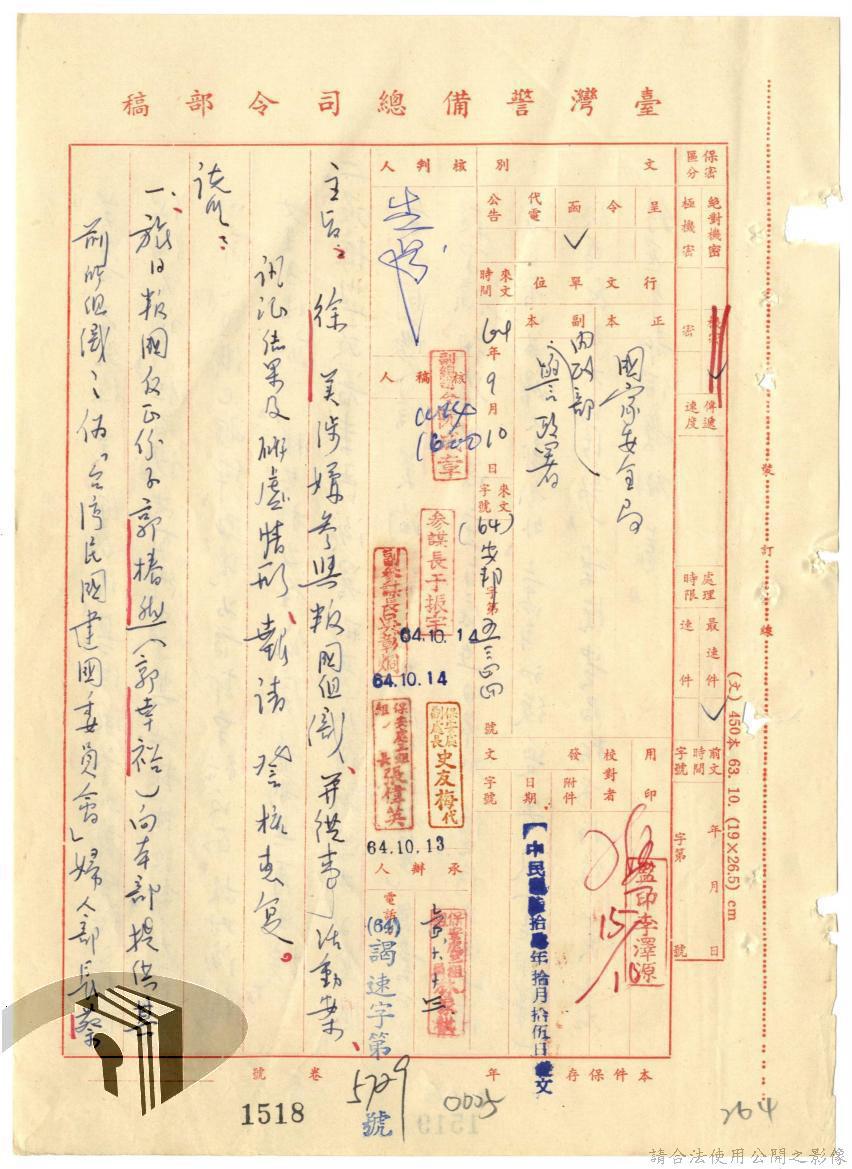 臺灣警備總司令部稿
保密區分
絕對機密
極機密
機密
密
傳遞速度
處理時限
最速件
速件
前文時間字號
年月日
字第號
文別
呈
令
函
代電
公告
行文單位
正本
國家安全局
副本
內政部
警政署
來文時間
64年9月10日
來文字號
(64)安邦字第五三四四號
用印
校對者
監印李澤源
15/10
發文
附件
日期
中華民國陸拾肆年拾月拾伍日發文
字號
(64)謁速字第5729號
核判人
核稿人
1014
1600
參謀長于振宇
64.10.14
副參謀長吳彰炯
64.10.14
保安處副處長史友梅代
保安處三組組長張偉英
64.10.13
承辦人
電話
主旨：徐 美涉嫌參與叛國組織，并從事活動案，
訊証結果及研處情形，報請 登核惠复。
說明：
一、旅日叛國反正份子郭椿然（郭幸裕）向本部提供其
前所組織之偽「台湾民國建國委員會」婦人部長蔡
本件保存 年
卷 號
1518
0025
264
裝訂線
(文) 450本 63. 10. (19×26.5) cm
1519
請合法使用公開之影像